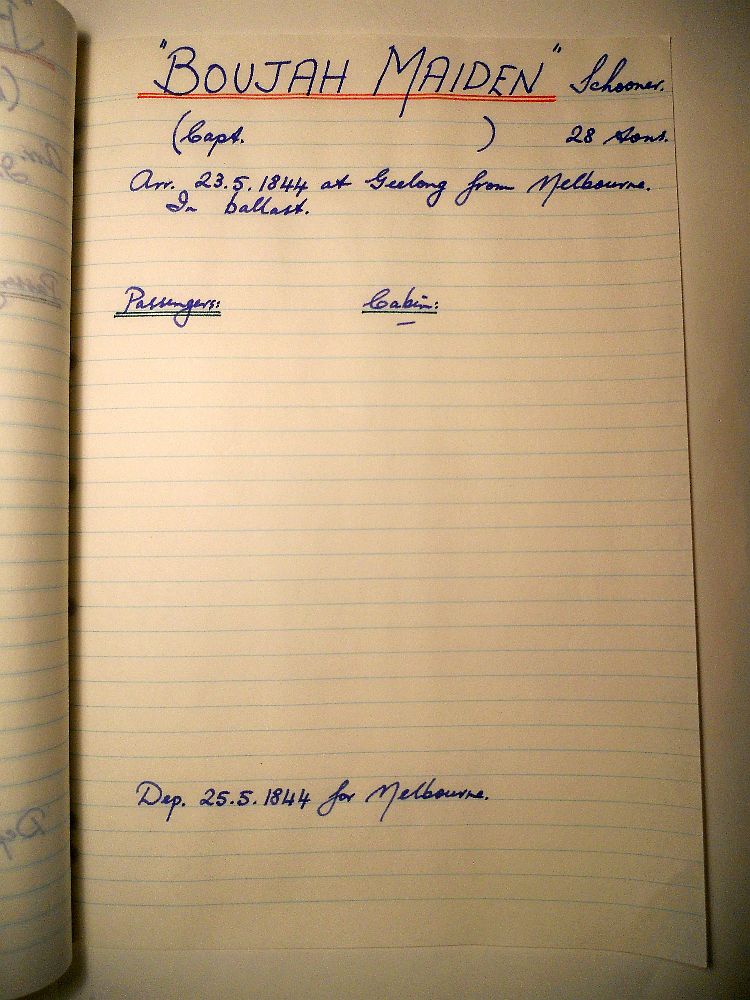 "BOUJAH MAIDEN" Schooner.
(Capt. ) 28 tons.
Arr. 23.5.1844 at Geelong from Melbourne.
In ballast.
Passengers: Cabin:
–
Dep. 25.5.1844 for Melbourne.